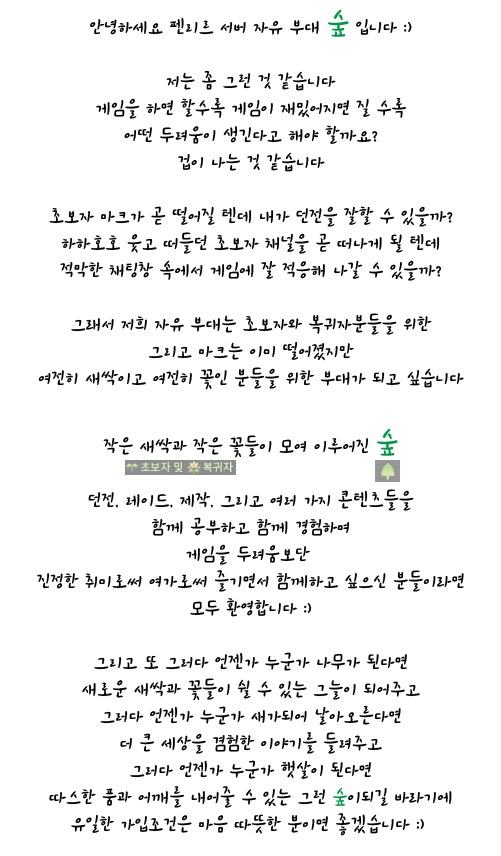 안녕하세요 펜리르 서버 자유 부대 숲 입니다 :)
저는 좀 그런 것 같습니다
게임을 하면 할수록 게임이 재밌어지면 질 수록
어떤 두려움이 생긴다고 해야 할까요?
겁이 나는 것 같습니다
초보자 마크가 곧 떨어질 텐데 내가 던전을 잘할 수 있을까?
하하호호 웃고 떠들던 초보자 채널을 곧 떠나게 될 텐데
적막한 채팅창 속에서 게임에 잘 적응해 나갈 수 있을까?
그래서 저희 자유 부대는 초보자와 복귀자분들을 위한
그리고 마크는 이미 떨어졌지만
여전히 새싹이고 여전히 꽃인 분들을 위한 부대가 되고 싶습니다
작은 새싹과 작은 꽃들이 모여 이루어진 숲
초보자 및 복귀자
던전, 레이드, 제작, 그리고 여러 가지 콘텐츠들을
함께 공부하고 함께 경험하며
게임을 두려움보단
진정한 취미로써 여가로써 즐기면서 함께하고 싶으신 분들이라면
모두 환영합니다 :)
그리고 또 그러다 언젠가 누군가 나무가 된다면
새로운 새싹과 꽃들이 쉴 수 있는 그늘이 되어주고
그러다 언젠가 누군가 새가되어 날아오른다면
더 큰 세상을 겸험한 이야기를 들려주고
그러다 언젠가 누군가 햇살이 된다면
따스한 품과 어깨를 내어줄 수 있는 그런 숲이되길 바라기에
유일한 가입조건은 마음 따뜻한 분이면 좋겠습니다 :)